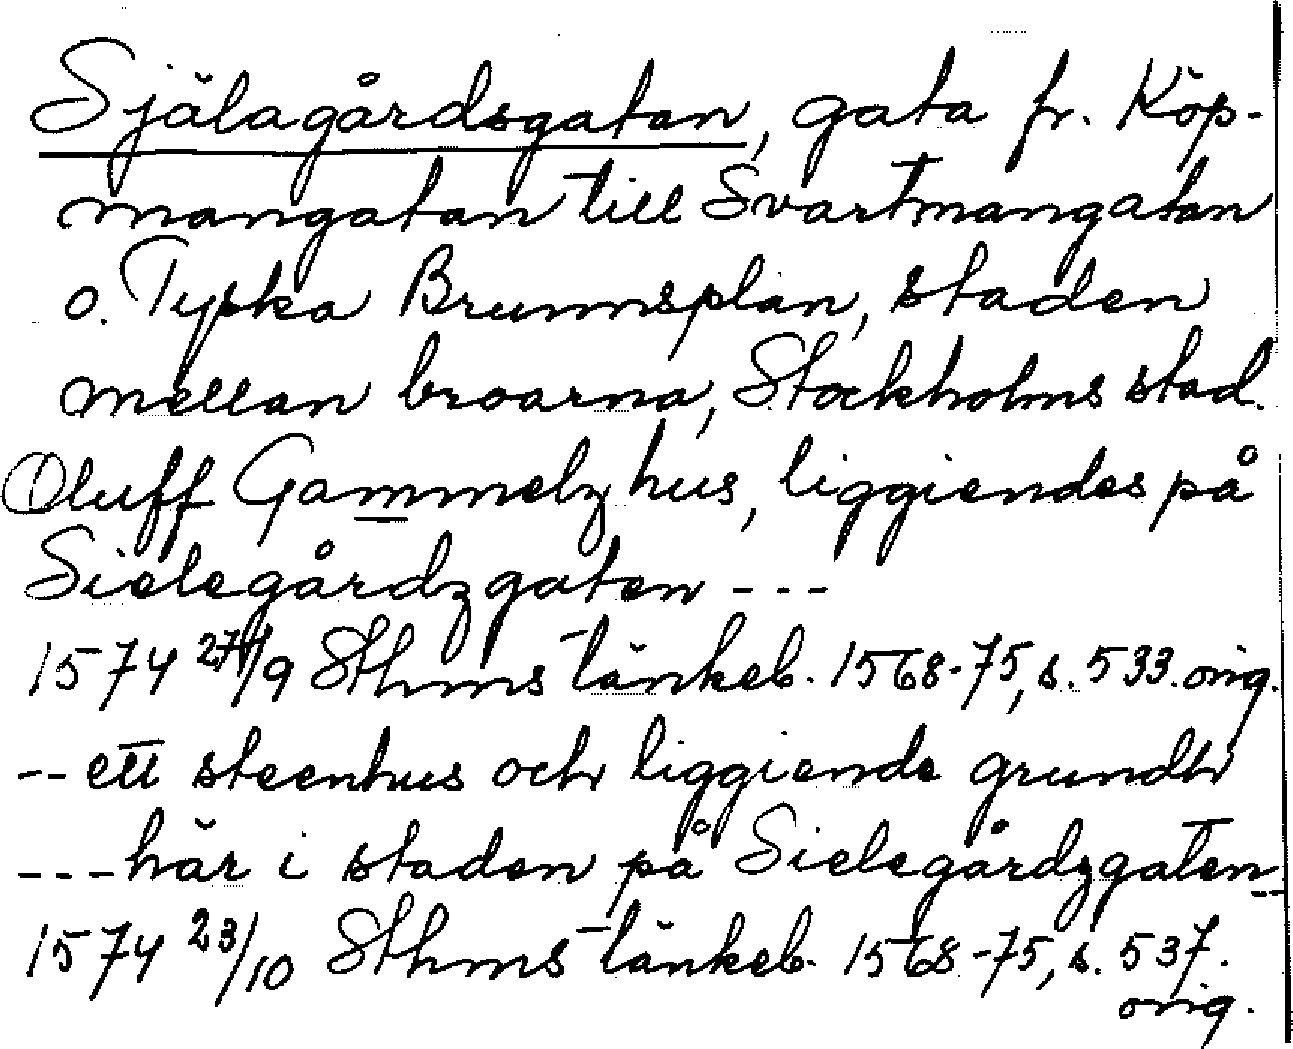 Själagårdsgatan, gata fr. Köp-
mangatan till Svartmangatan
o. Tyska Brunnsplan, staden
mellan broarna, Stockholms stad.
Oluff Gammelz hus, liggiendes på
Sielegårdzgaten ---
1574 27/9 Sthms tänkeb. 1568-75, s. 533. orig.
-- ett steenhus och liggiende grundh
--- här i staden på Sielegårdzgaten --
1574 23/10 Sthms tänkeb. 1568-75, s. 537.
orig.